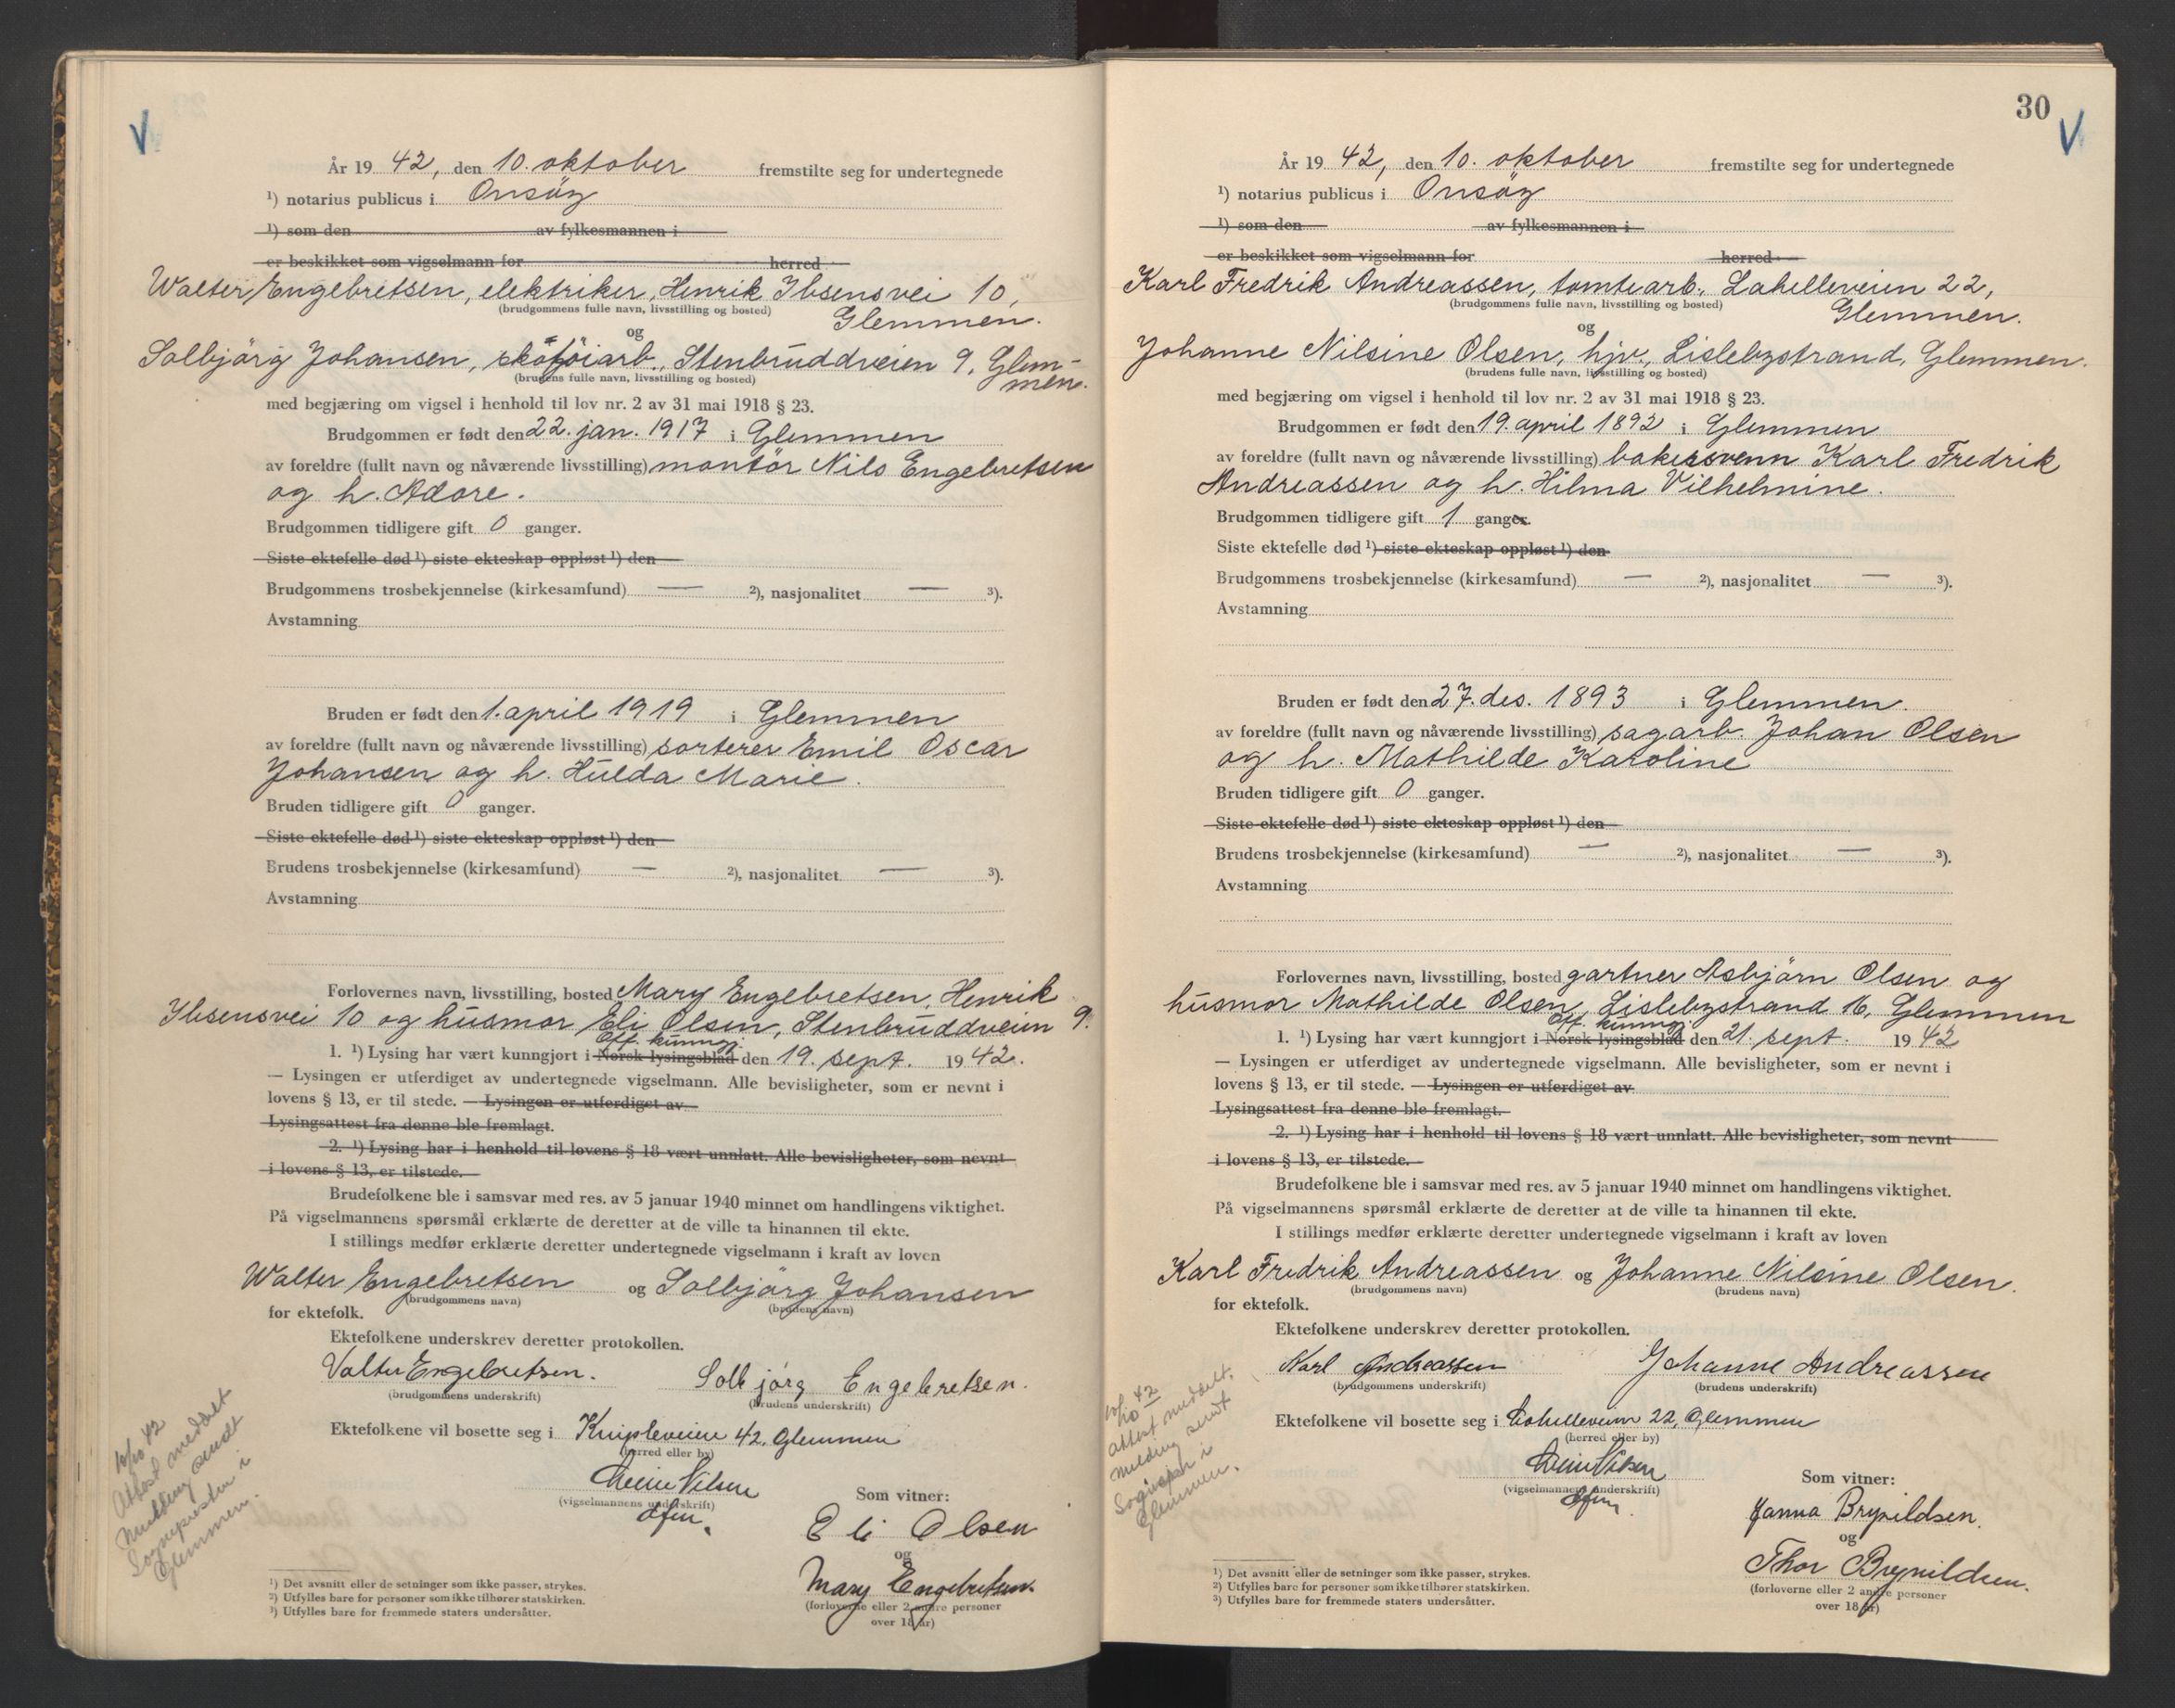 År 19 42, den 10. oktober fremstilte seg for undertegnede
¹) notarius publicus i Onsöy
¹) som den av fylkesmannen i
er beskikket som vigselmann for herred
Walter Engebretsen, elektriker, Henrik Ibsensvei 10,
(brudgommens fulle navn, livsstilling og bosted) Glemmen.
og
Solbjörg Johansen, skotöiarb., Stenbruddveien 9, Glem-
(brudens fulle navn, livsstilling og bosted) men.
med begjæring om vigsel i henhold til lov nr. 2 av 31 mai 1918 § 23.
Brudgommen er født den 22. jan. 1917 i Glemmen
av foreldre (fullt navn og nåværende livsstilling) montör Nils Engebretsen
og h. Adore.
Brudgommen tidligere gift 0 ganger.
Siste ektefelle død ¹) siste ekteskap oppløst ¹) den
Brudgommens trosbekjennelse (kirkesamfund) — ²), nasjonalitet — ³).
Avstamning
Bruden er født den 1. april 1919 i Glemmen
av foreldre (fullt navn og nåværende livsstilling) sorterer Emil Oscar
Johansen og h. Hulda Marie.
Bruden tidligere gift 0 ganger.
Siste ektefelle død ¹) siste ekteskap oppløst ¹) den
Brudens trosbekjennelse (kirkesamfund) — ²), nasjonalitet — ³).
Avstamning
Forlovernes navn, livsstilling, bosted Mary Engebretsen, Henrik
Ibsensvei 10 og husmor Eli Olsen, Stenbruddveien 9.
off. kunngj.
1. ¹) Lysing har vært kunngjort i Norsk lysingsblad den 19. sept. 1942.
— Lysingen er utferdiget av undertegnede vigselmann. Alle bevisligheter, som er nevnt i
lovens § 13, er til stede. — Lysingen er utferdiget av
Lysingsattest fra denne ble fremlagt.
2. ¹) Lysing har i henhold til lovens § 18 vært unnlatt. Alle bevisligheter, som nevnt
i lovens § 13, er tilstede.
Brudefolkene ble i samsvar med res. av 5 januar 1940 minnet om handlingens viktighet.
På vigselmannens spørsmål erklærte de deretter at de ville ta hinannen til ekte.
I stillings medfør erklærte deretter undertegnede vigselmann i kraft av loven
Walter Engebretsen og Solbjörg Johansen
(brudgommens navn) (brudens navn)
for ektefolk.
Ektefolkene underskrev deretter protokollen.
Valter Engebretsen. Solbjörg Engebretsen.
(brudgommens underskrift) (brudens underskrift)
Ektefolkene vil bosette seg i Knipleveien 42, Glemmen
(herred eller by)
Nilsen
(vigselmannens underskrift)
Som vitner:
Eli Olsen
og
Mary Engebretsen.
(forloverne eller 2 andre personer
over 18 år)
10/10 42
Attest meddelt
Melding sendt
Sognepresten i
Glemmen.
¹) Det avsnitt eller de setninger som ikke passer, strykes.
²) Utfylles bare for personer som ikke tilhører statskirken.
³) Utfylles bare for fremmede staters undersåtter.
30
År 19 42, den 10. oktober fremstilte seg for undertegnede
¹) notarius publicus i Onsöy
¹) som den av fylkesmannen i
er beskikket som vigselmann for herred
Karl Fredrik Andreassen, tomtearb., Lahelleveien 22,
(brudgommens fulle navn, livsstilling og bosted) Glemmen.
og
Johanne Nilsine Olsen, hjv., Lislebystrand, Glemmen.
(brudens fulle navn, livsstilling og bosted)
med begjæring om vigsel i henhold til lov nr. 2 av 31 mai 1918 § 23.
Brudgommen er født den 19. april 1892 i Glemmen
av foreldre (fullt navn og nåværende livsstilling) bakersvenn Karl Fredrik
Andreassen og h. Hilma Vilhelmine.
Brudgommen tidligere gift 1 ganger.
Siste ektefelle død ¹) siste ekteskap oppløst ¹) den
Brudgommens trosbekjennelse (kirkesamfund) — ²), nasjonalitet — ³).
Avstamning
Bruden er født den 27. des. 1893 i Glemmen.
av foreldre (fullt navn og nåværende livsstilling) sagarb. Johan Olsen
og h. Mathilde Karoline
Bruden tidligere gift 0 ganger.
Siste ektefelle død ¹) siste ekteskap oppløst ¹) den
Brudens trosbekjennelse (kirkesamfund) — ²), nasjonalitet — ³).
Avstamning
Forlovernes navn, livsstilling, bosted gartner Asbjörn Olsen og
husmor Mathilde Olsen, Lislebystrand 16, Glemmen
off. kunngj.
1. ¹) Lysing har vært kunngjort i Norsk lysingsblad den 21. sept. 1942
— Lysingen er utferdiget av undertegnede vigselmann. Alle bevisligheter, som er nevnt i
lovens § 13, er til stede. — Lysingen er utferdiget av
Lysingsattest fra denne ble fremlagt.
2. ¹) Lysing har i henhold til lovens § 18 vært unnlatt. Alle bevisligheter, som nevnt
i lovens § 13, er tilstede.
Brudefolkene ble i samsvar med res. av 5 januar 1940 minnet om handlingens viktighet.
På vigselmannens spørsmål erklærte de deretter at de ville ta hinannen til ekte.
I stillings medfør erklærte deretter undertegnede vigselmann i kraft av loven
Karl Fredrik Andreassen og Johanne Nilsine Olsen.
(brudgommens navn) (brudens navn)
for ektefolk.
Ektefolkene underskrev deretter protokollen.
Karl Andreassen Johanne Andreassen
(brudgommens underskrift) (brudens underskrift)
Ektefolkene vil bosette seg i Lahelleveien 22, Glemmen
(herred eller by)
Nilsen
(vigselmannens underskrift)
Som vitner:
Janna Brynildsen.
og
Thor Brynildsen.
(forloverne eller 2 andre personer
over 18 år)
10/10 42
attest meddelt.
melding sendt
Sognepr. i
Glemmen.
¹) Det avsnitt eller de setninger som ikke passer, strykes.
²) Utfylles bare for personer som ikke tilhører statskirken.
³) Utfylles bare for fremmede staters undersåtter.